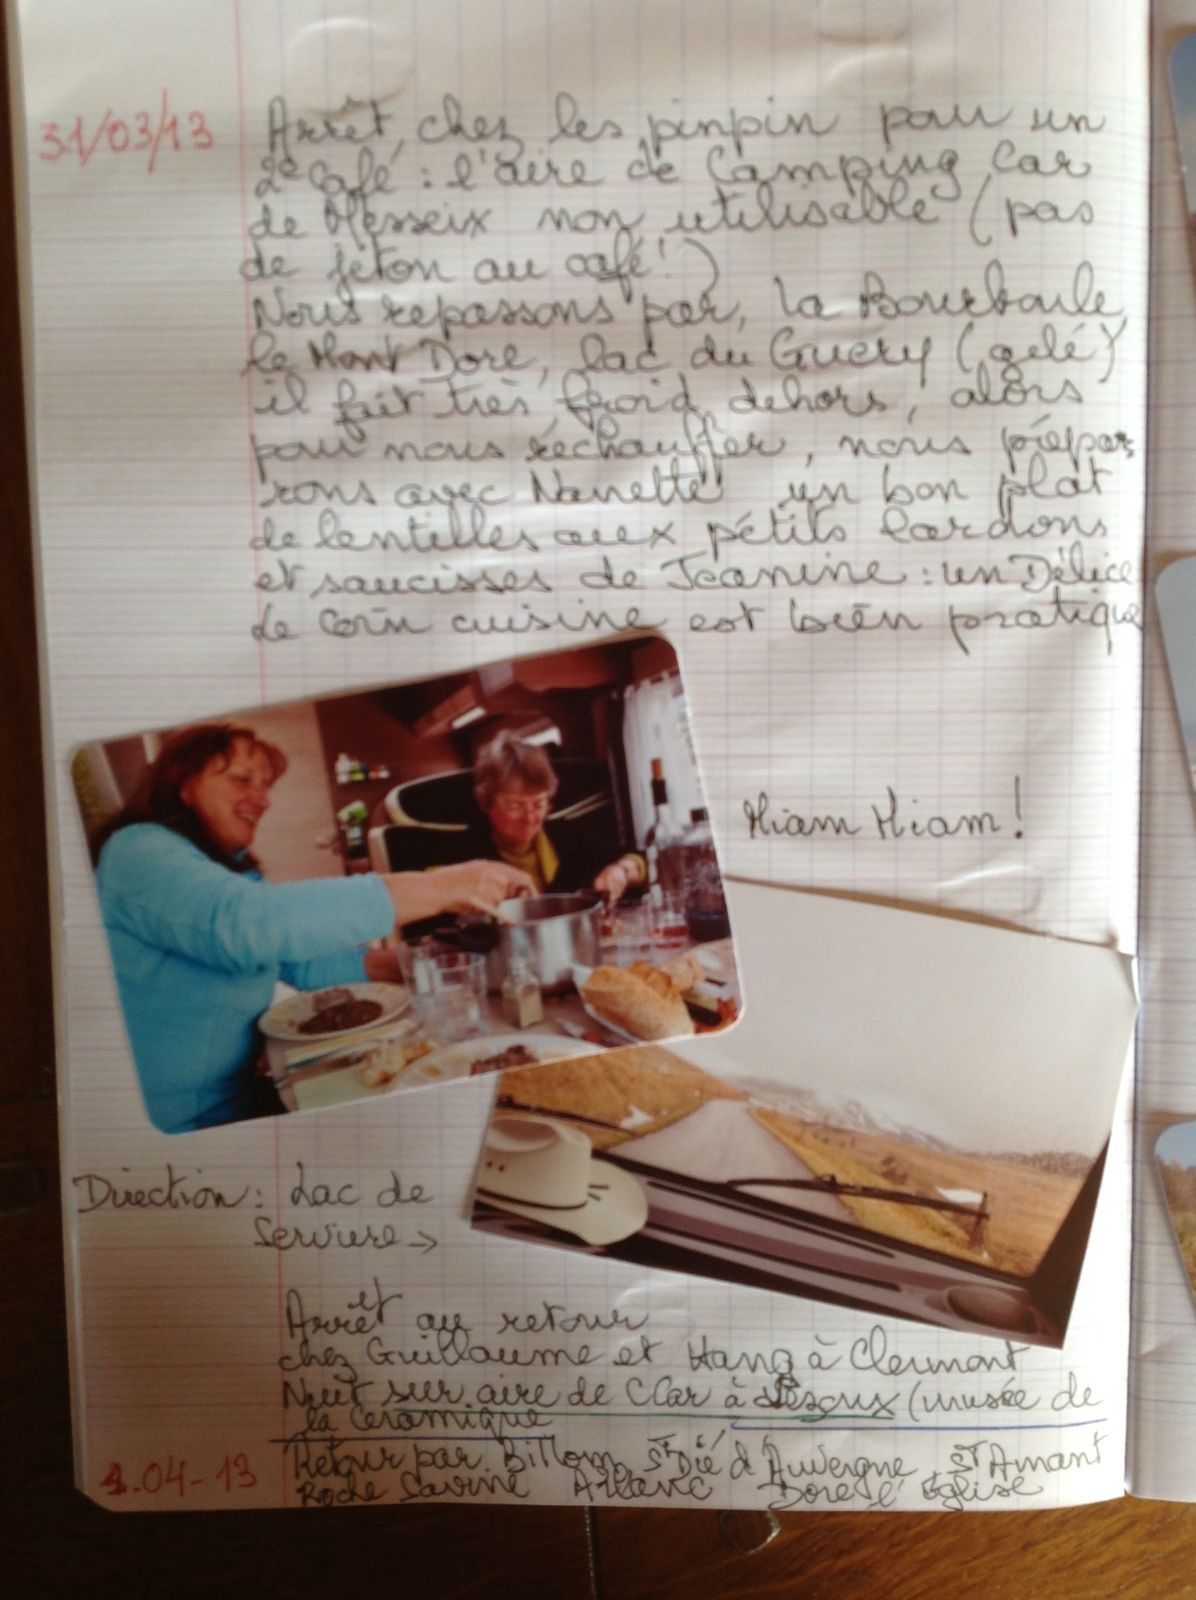 31/03/13 Arrêt, chez les pinpin pour un
2e café : l'aire de Camping Car
de Messeix non utilisable (pas
de jeton au café !)
Nous repassons par, la Bourboule,
le Mont Dore, lac du Guéry (gelé)
il fait très froid dehors, alors
pour nous réchauffer, nous prépa
rons avec Nanette un bon plat
de lentilles aux petits lardons
et saucisses de Jeanine : un Délice
le coin cuisine est bien pratique
Miam Miam !
Direction : Lac de
Serviere →
Arrêt au retour
chez Guillaume et Hang à Clermont
Nuit sur aire de CCar à Lezoux (musée de
la Ceramique
1.04-13 Retour par Billom, St Dié d'Auvergne St Amant
Roche Savine Arlanc Dore l'Eglise